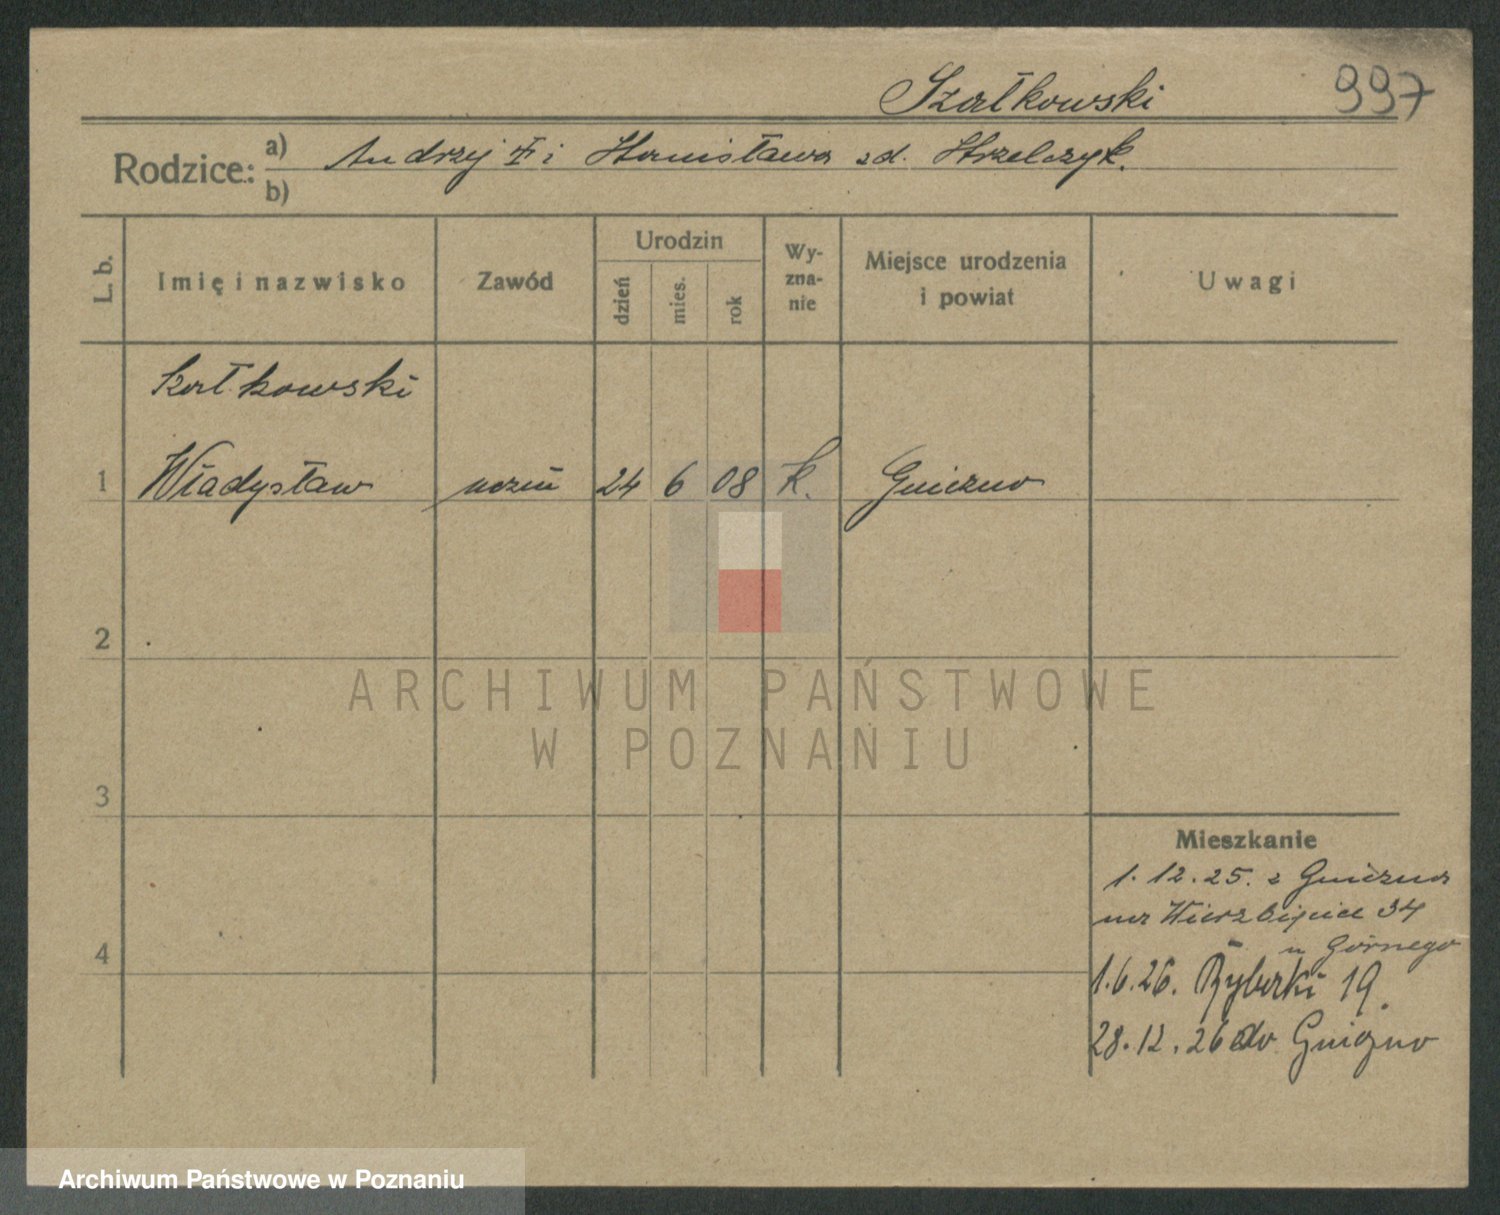 Szałkowski 997
Rodzice: a) Andrzej i Stanisława zd. Strzelczyk.
b)
L. b.
Imię i nazwisko
Zawód
Urodzin
dzień
mies.
rok
Wy-
zna-
nie
Miejsce urodzenia
i powiat
Uwagi
Szałkowski
1 Władysław uczeń 24 6 08 k. Gniezno
2
3
4
ARCHIWUM PAŃSTWOWE
W POZNANIU
Mieszkanie
1. 12. 25. z Gniezna
na Wierzbięcice 34
u Górnego
1.6.26. Rybaki 19.
28.12.26 do Gniezno
Archiwum Państwowe w Poznaniu